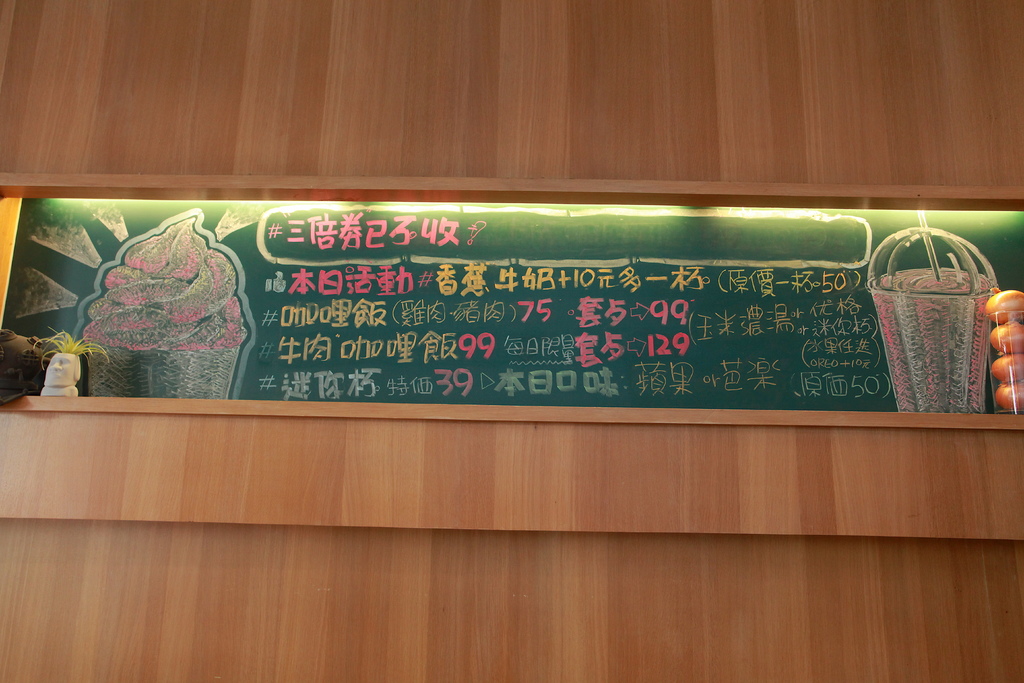 #三倍券已不收!
本日活動#香蕉牛奶+10元多一杯(原價一杯50)
#咖哩飯(雞肉·豬肉)75 套歺⇨99
#牛肉咖哩飯99 每日限量 套歺⇨129
(玉米濃湯or优格
or迷你杯
(水果任選)
(OREO+10元)
#迷你杯 特価39 ▷本日口味:蘋果or芭楽(原価50)